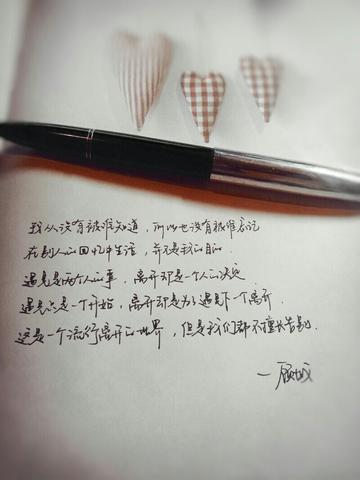 我从没有被谁知道，所以也没有被谁忘记
在别人的回忆中生活，并不是我的目的.
遇见是两个人的事，离开却是一个人的决定
遇见只是一个开始，离开却是为了遇见下一个离开.
这是一个流行离开的世界，但是我们都不擅长告别.
—顾城